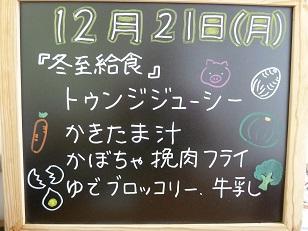 12月21日(月)
『冬至給食』
トゥンジジューシー
かきたま汁
かぼちゃ挽肉フライ
ゆでブロッコリー、牛乳